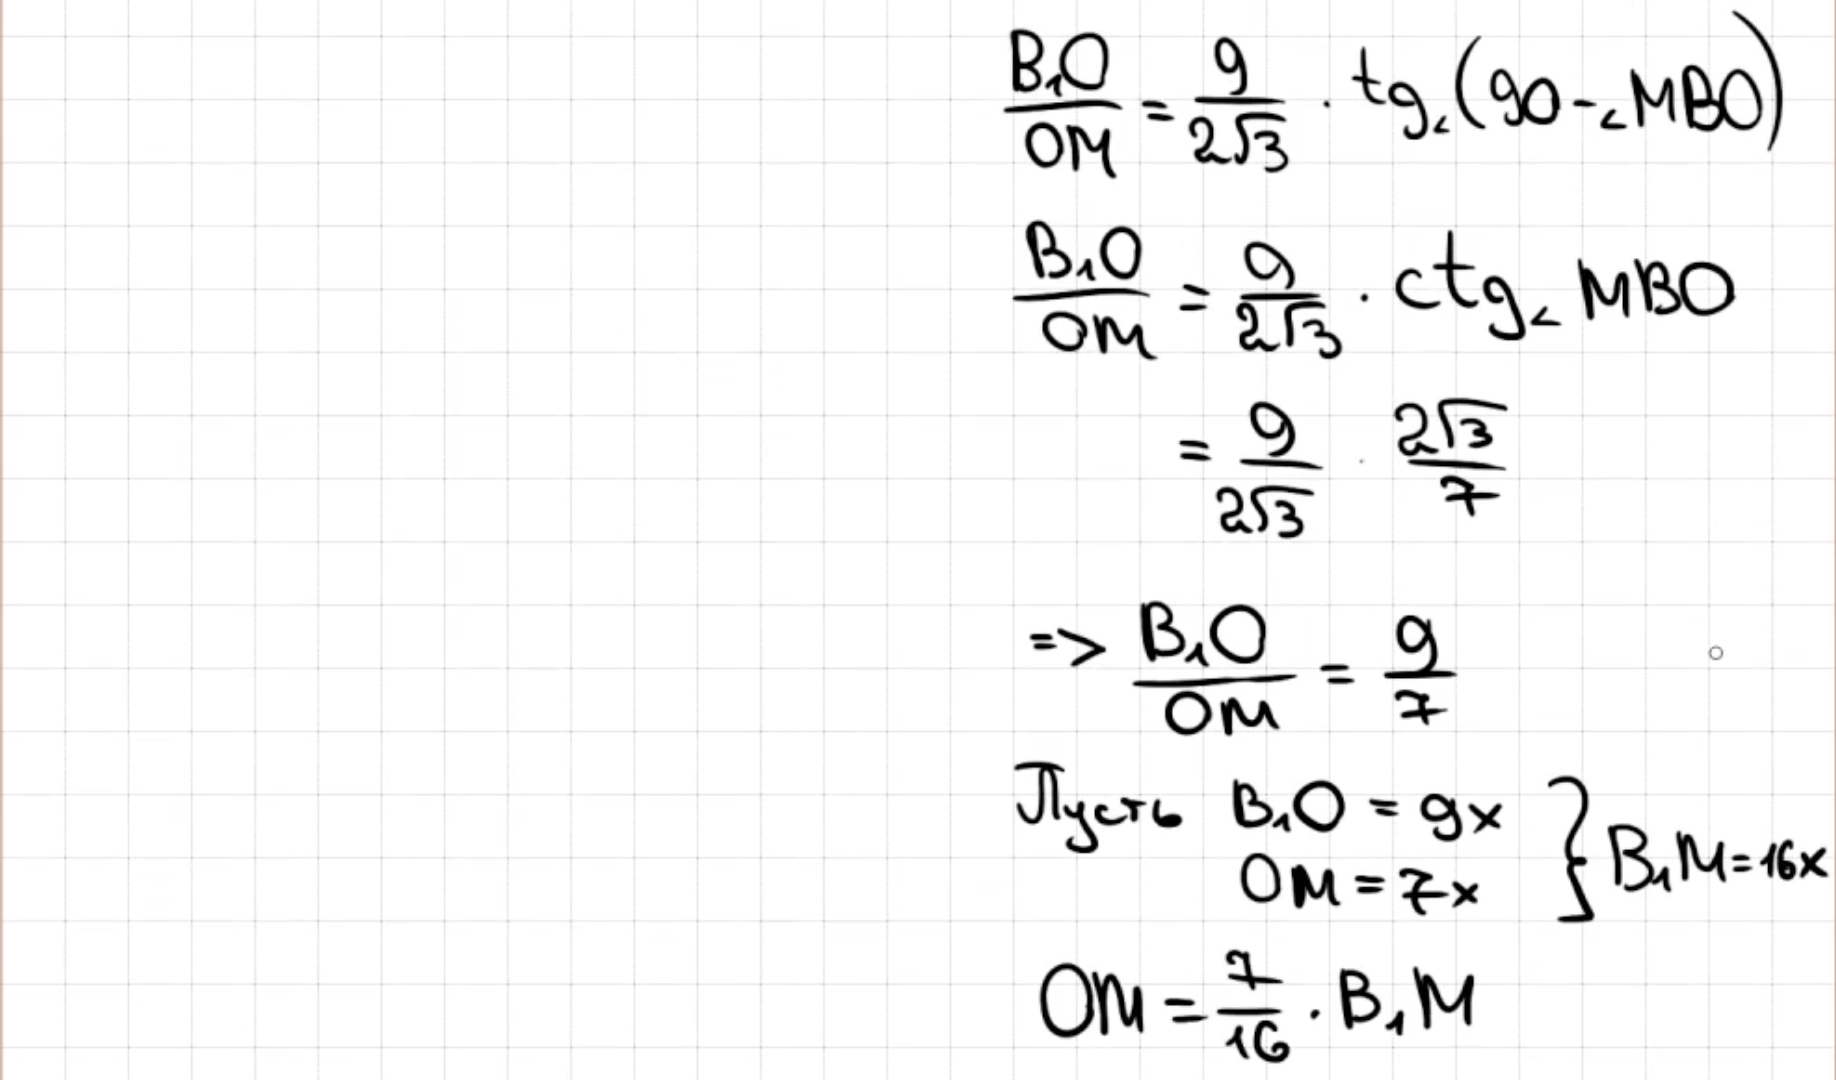 B₁O/OM = 9/(2√3) · tg∠(90-∠MBO)
B₁O/OM = 9/(2√3) · ctg∠MBO
= 9/(2√3) · 2√3/7
=> B₁O/OM = 9/7
Пусть B₁O = 9x
OM = 7x } B₁M = 16x
OM = 7/16 · B₁M